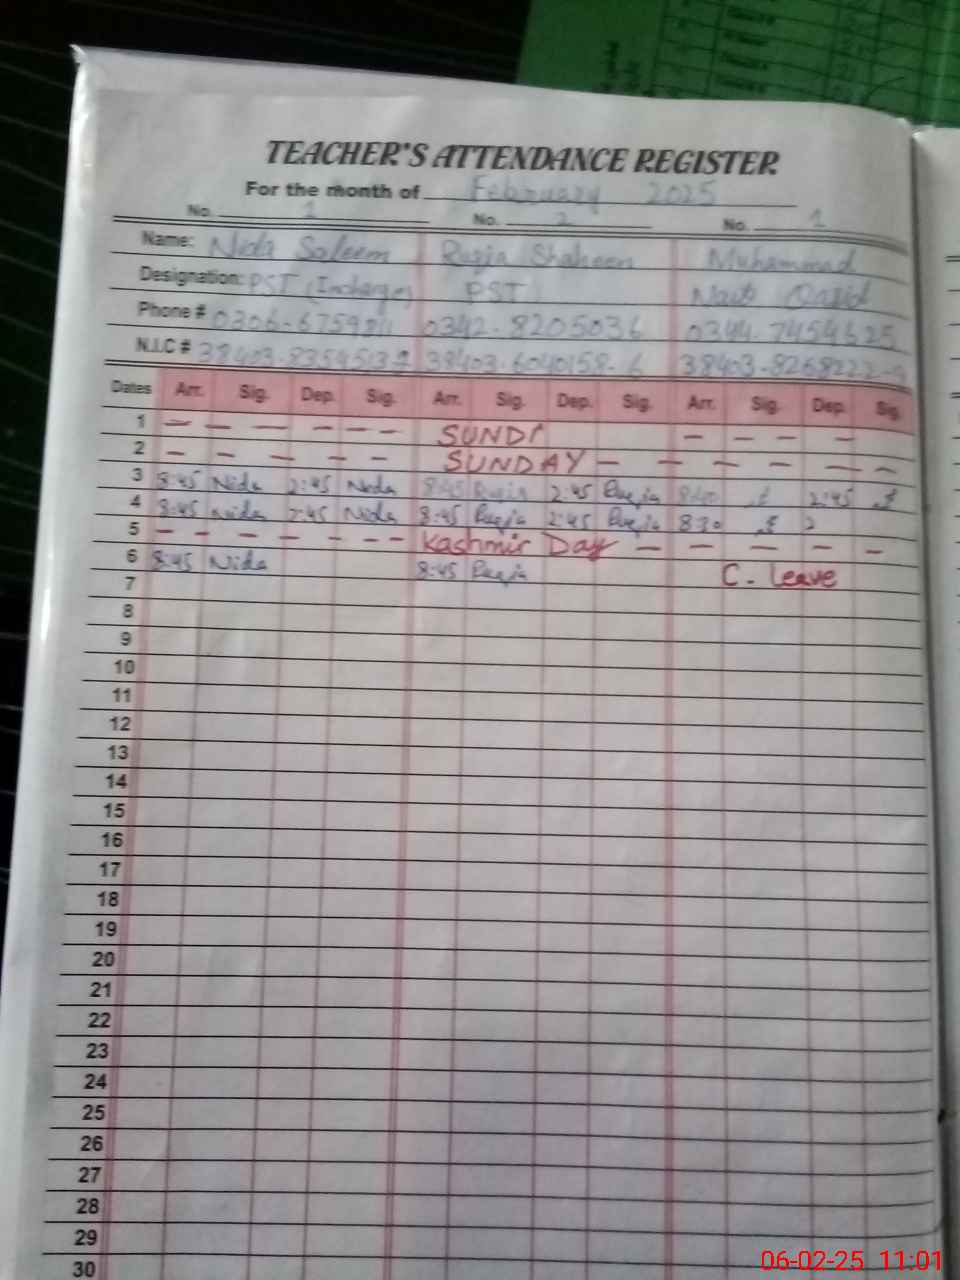 TEACHER'S ATTENDANCE REGISTER
For the month of February 2025
No. 1 No. 2 No. 1
Name: Nida Saleem Ruqia Shaheen Muhammad
Designation: PST (Incharge) PST
Phone # 0342-8205036 0344-7454625
N.I.C # 38403-6040158-6
Dates Arr. Sig. Dep. Sig. Arr. Sig. Dep. Sig. Arr. Sig. Dep. Sig.
1 – – – – – SUNDA – – – –
2 – – – – – SUNDAY – – – – – –
3 8:45 Nida 2:45 Nida 8:45 Ruqia 2:45 Ruqia 2:45
4 8:45 Nida 2:45 Nida 8:45 Ruqia 2:45 Ruqia 8:30 2
5 – – – – – – Kashmir Day – – – – –
6 8:45 Nida 8:45 Ruqia C. leave
7
8
9
10
11
12
13
14
15
16
17
18
19
20
21
22
23
24
25
26
27
28
29
30
06-02-25 11:01